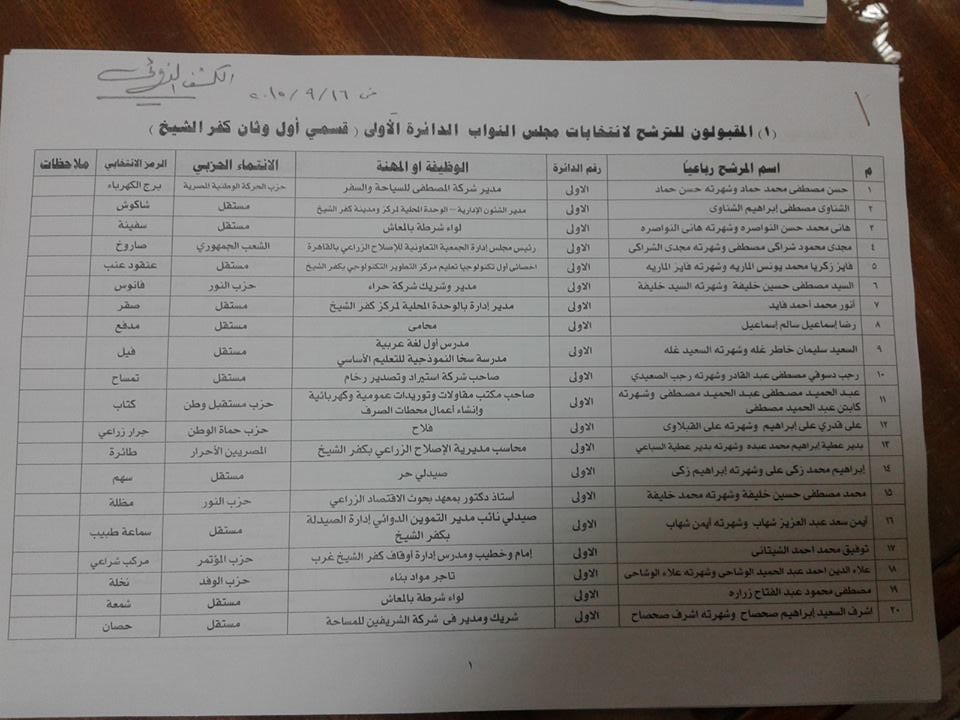 الكشف النهائى
من ٢٠١٥/٩/١٦
(١) المقبولون للترشح لانتخابات مجلس النواب الدائرة الأولى ( قسمي أول وثان كفر الشيخ )
م اسم المرشح رباعياً رقم الدائرة الوظيفة او المهنة الانتماء الحزبي الرمز الانتخابي ملاحظات
١ حسن مصطفى محمد حماد وشهرته حسن حماد الاولى مدير شركة المصطفى للسياحة والسفر حزب الحركة الوطنية المصرية برج الكهرباء
٢ الشناوى مصطفى إبراهيم الشناوى الاولى مدير الشئون الإدارية – الوحدة المحلية لمركز ومدينة كفر الشيخ مستقل شاكوش
٣ هانى محمد حسن النواصره وشهرته هانى النواصره الاولى لواء شرطة بالمعاش مستقل سفينة
٤ مجدى محمود شراكى مصطفى وشهرته مجدى الشراكى الاولى رئيس مجلس إدارة الجمعية التعاونية للإصلاح الزراعي بالقاهرة الشعب الجمهوري صاروخ
٥ فايز زكريا محمد يونس الماريه وشهرته فايز الماريه الاولى اخصائى أول تكنولوجيا تعليم مركز التطوير التكنولوجي بكفر الشيخ مستقل عنقود عنب
٦ السيد مصطفى حسين خليفة وشهرته السيد خليفة الاولى مدير وشريك شركة حراء حزب النور فانوس
٧ أنور محمد أحمد فايد الاولى مدير إدارة بالوحدة المحلية لمركز كفر الشيخ مستقل صقر
٨ رضا إسماعيل سالم إسماعيل الاولى محامى مستقل مدفع
٩ السعيد سليمان خاطر غله وشهرته السعيد غله الاولى مدرس أول لغة عربية مستقل فيل
مدرسة سخا النموذجية للتعليم الأساسي
١٠ رجب دسوقي مصطفى عبد القادر وشهرته رجب الصعيدي الاولى صاحب شركة استيراد وتصدير رخام مستقل تمساح
١١ عبد الحميد مصطفى عبد الحميد مصطفى وشهرته الاولى صاحب مكتب مقاولات وتوريدات عمومية وكهربائية حزب مستقبل وطن كتاب
كابتن عبد الحميد مصطفى وإنشاء أعمال محطات الصرف
١٢ على قدري على إبراهيم وشهرته على القبلاوى الاولى فلاح حزب حماة الوطن جرار زراعي
١٣ بدير عطية إبراهيم محمد عبده وشهرته بدير عطية السباعي الاولى محاسب مديرية الإصلاح الزراعي بكفر الشيخ المصريين الأحرار طائرة
١٤ إبراهيم محمد زكى على وشهرته إبراهيم زكى الاولى صيدلي حر مستقل سهم
١٥ محمد مصطفى حسين خليفة وشهرته محمد خليفة الاولى أستاذ دكتور بمعهد بحوث الاقتصاد الزراعي حزب النور مظلة
١٦ أيمن سعد عبد العزيز شهاب وشهرته أيمن شهاب الاولى صيدلي نائب مدير التموين الدوائي إدارة الصيدلة مستقل سماعة طبيب
بكفر الشيخ
١٧ توفيق محمد احمد الشيتانى الاولى إمام وخطيب ومدرس إدارة أوقاف كفر الشيخ غرب حزب المؤتمر مركب شراعي
١٨ علاء الدين احمد عبد الحميد الوشاحى وشهرته علاء الوشاحى الاولى تاجر مواد بناء حزب الوفد نخلة
١٩ مصطفى محمود عبد الفتاح زراره الاولى لواء شرطة بالمعاش مستقل شمعة
٢٠ اشرف السعيد إبراهيم صحصاح وشهرته اشرف صحصاح الاولى شريك ومدير فى شركة الشريفين للمساحة مستقل حصان
١